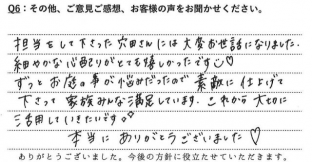 Q6：その他、ご意見ご感想、お客様の声をお聞かせください。
担当をして下さった穴田さんには大変お世話になりました。
細やかな心配りがとても嬉しかったです♡
ずっとお庭の事が悩みだったので素敵に仕上げて
下さって家族みんな満足しています。これから大切に
活用していきたいです。
本当にありがとうございました♡
ありがとうございました。今後の方針に役立たせていただきます。